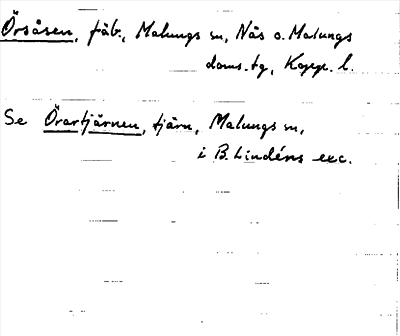 Örsåsen, fäb., Malungs sn, Nås o. Malungs
doms.tg, Kopp. l.
Se Örartjärnen, tjärn, Malungs sn,
i B. Lindéns exc.